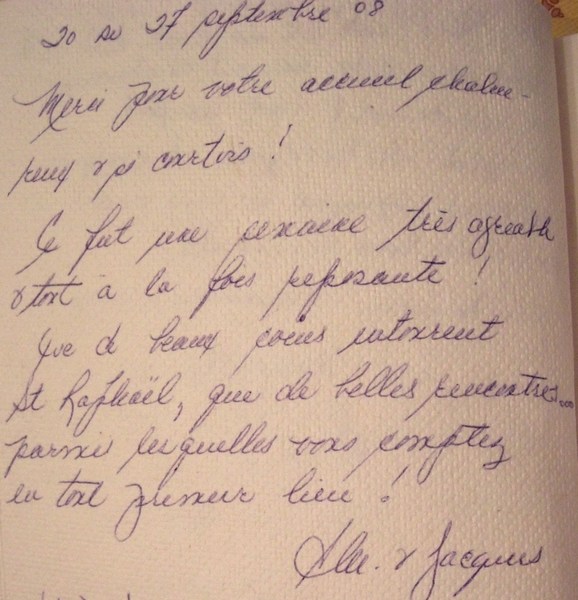 20 au 27 septembre 08
Merci pour votre accueil chaleu-
reux & si courtois !
Ce fut une semaine très agréable
& tout à la fois reposante !
Que de beaux coins entourent
St Raphaël, que de belles rencontres...
parmi lesquelles vous comptez
en tout premier lieu !
& Jacques